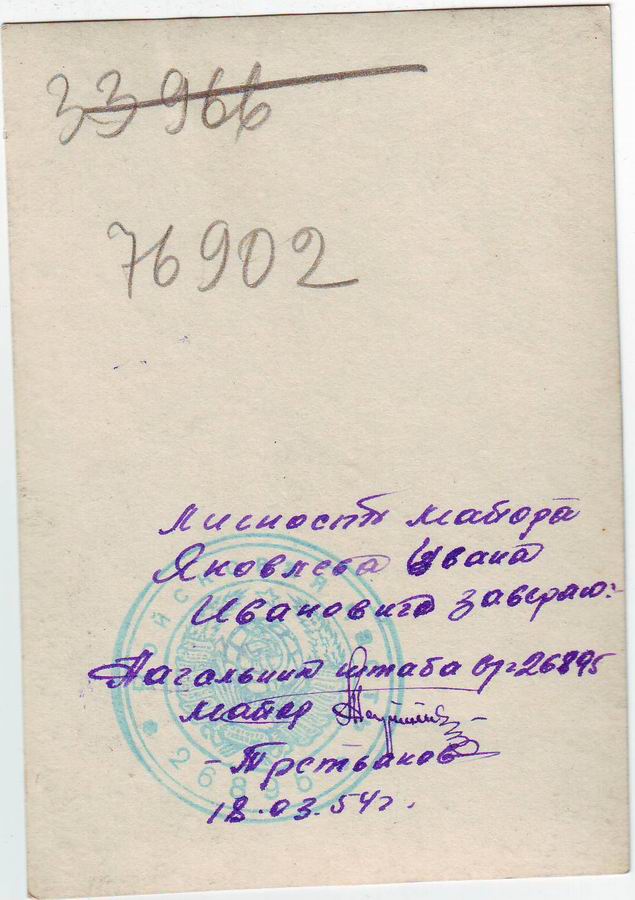 33966
76902
Личность майора
Яковлева Ивана
Ивановича заверяю:
Начальник штаба в/ч 26895
майор
- Третьяков
18.03.54 г.
ВОЙСКОВАЯ
26895